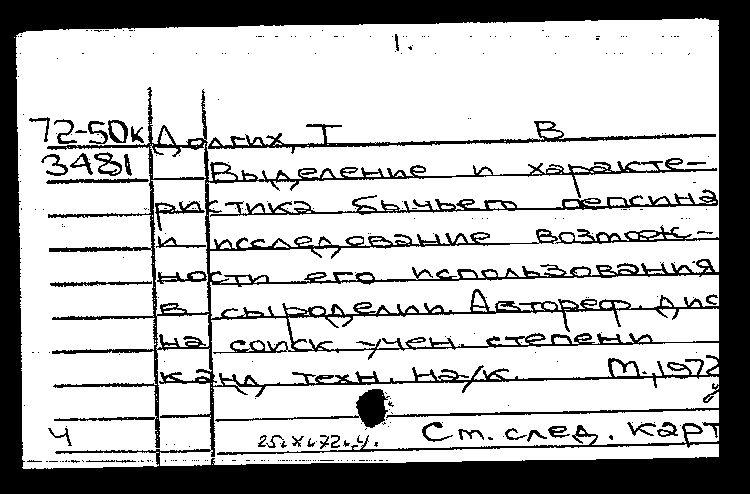 1.
72-50к Долгих, Т В
3481 Выделение и характе-
ристика бычьего пепсина
и исследование возмож-
ности его использования
в сыроделии. Автореф. дис
на соиск. учен. степени
канд техн. на/к. М., 1972
4 См. след. карт